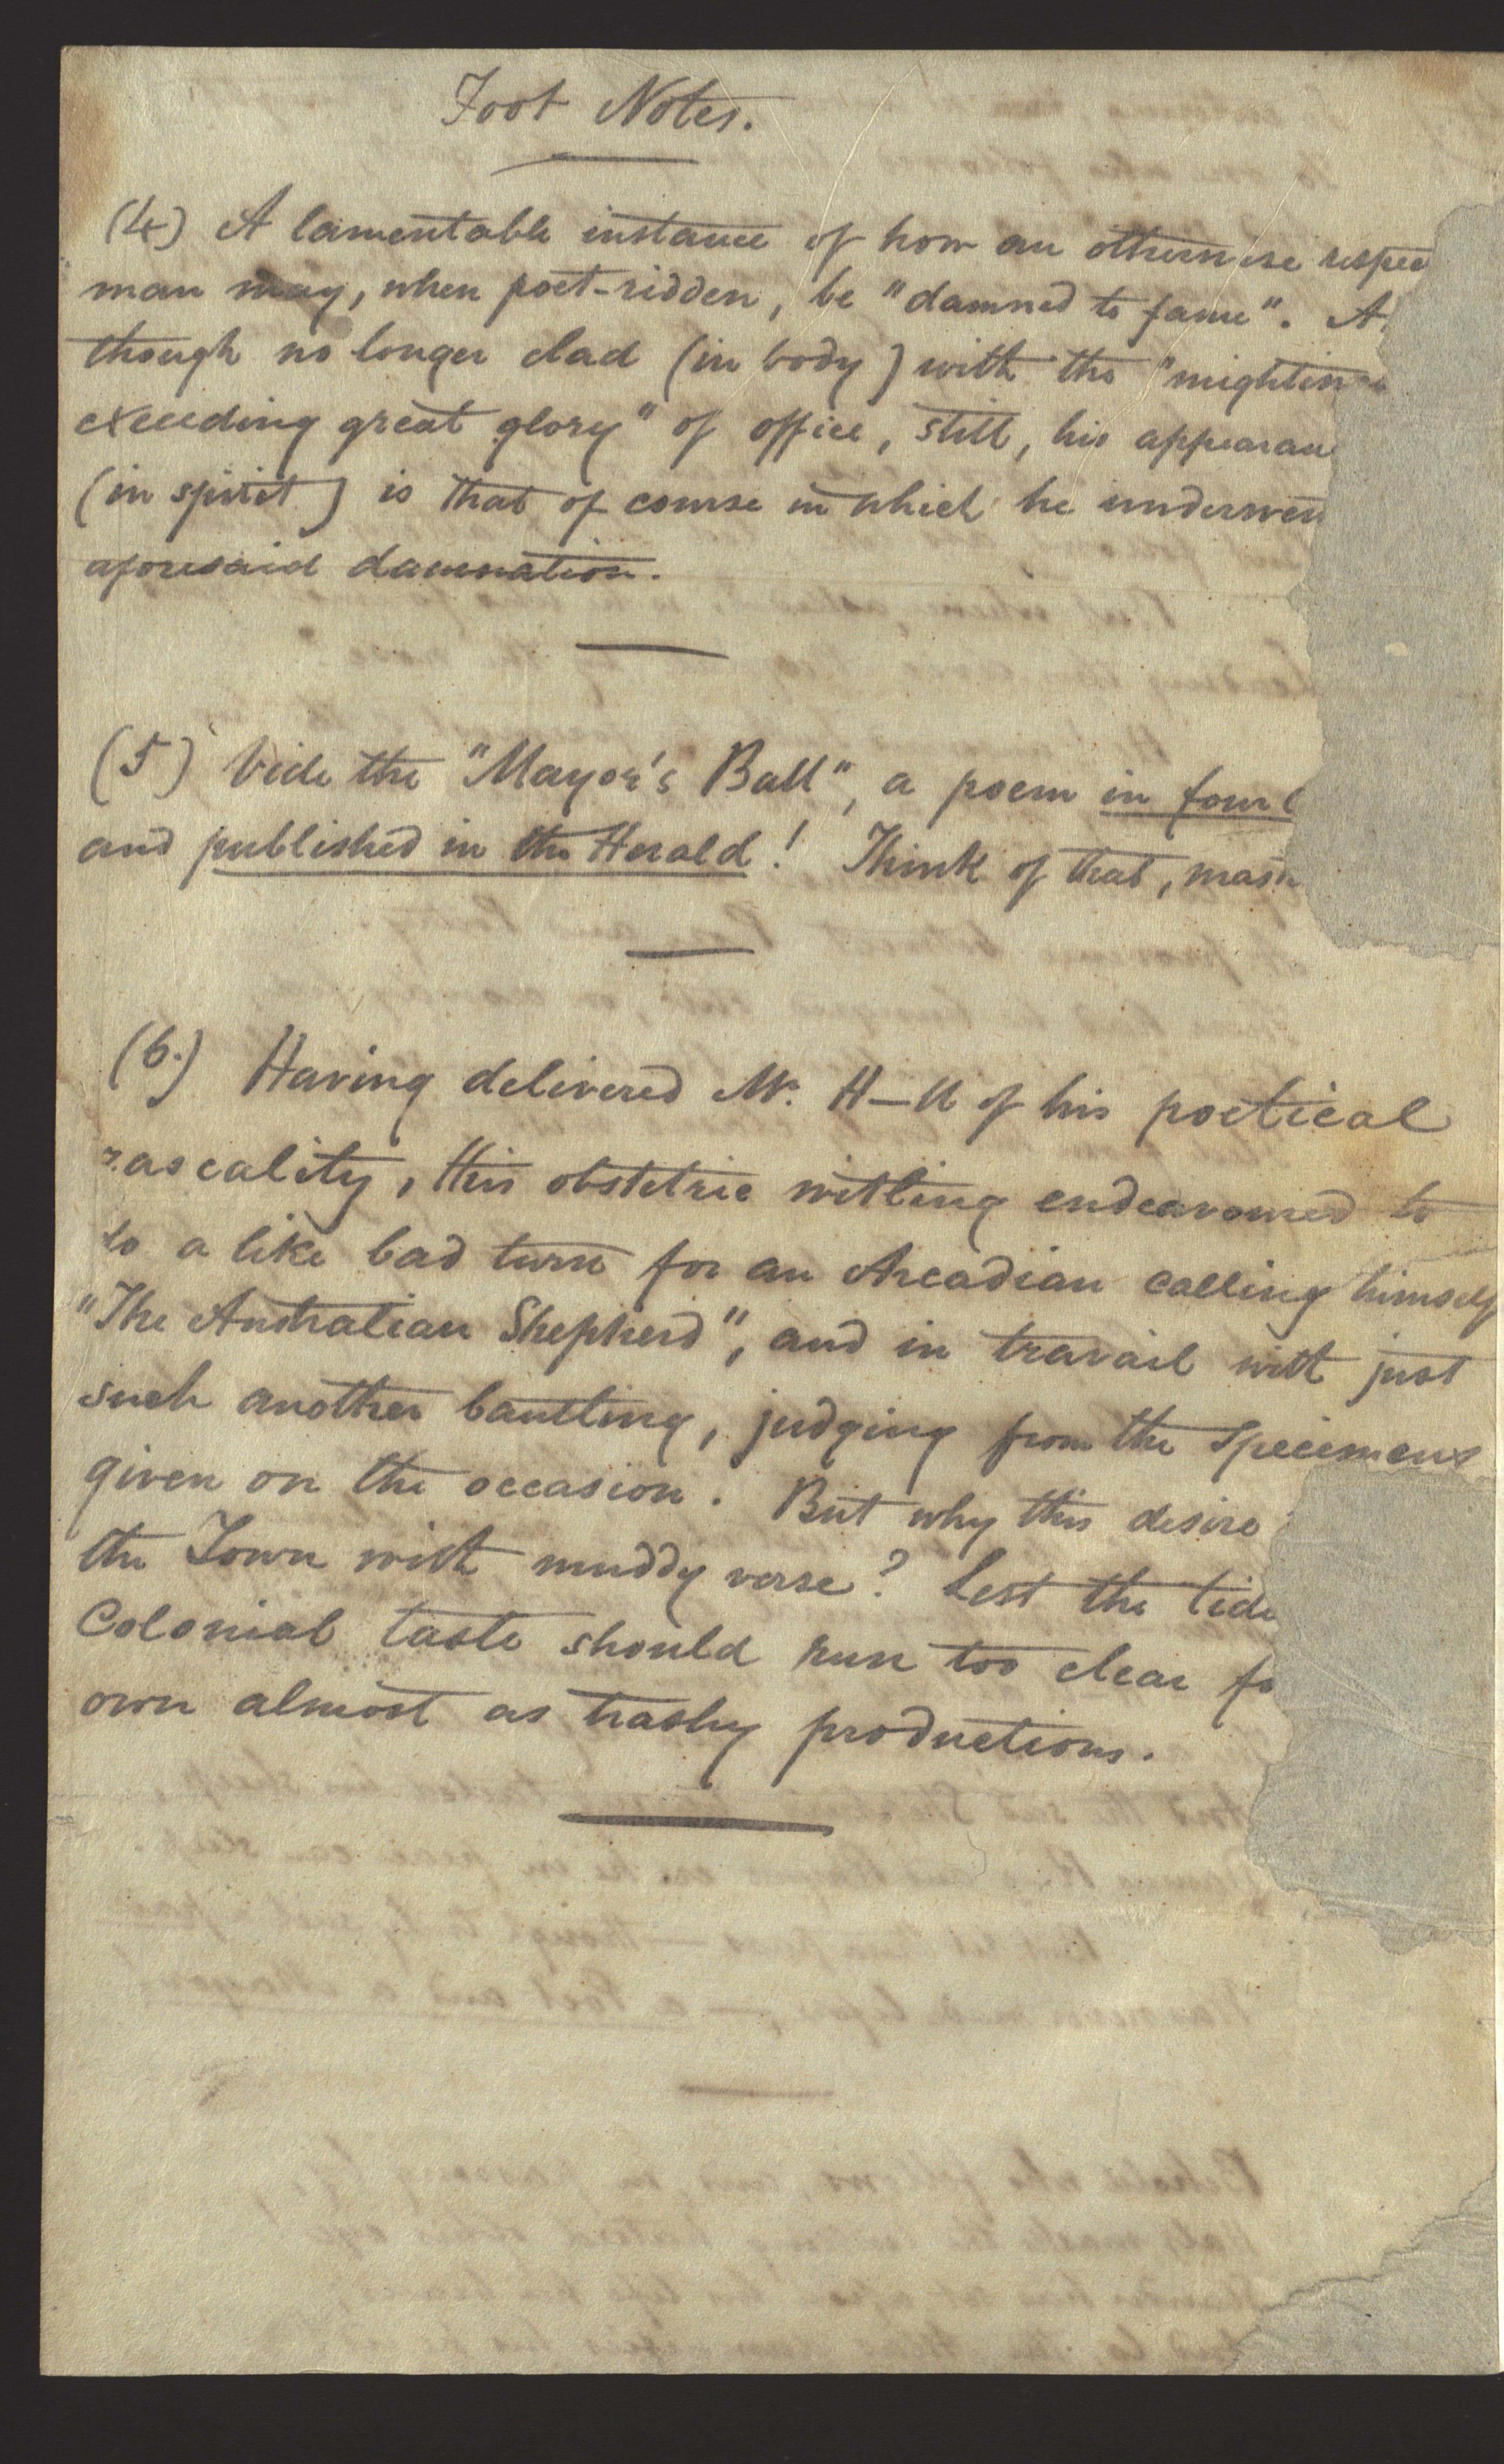 Foot Notes.
(4) A lamentable instance of how an otherwise respec
man may, when poet-ridden, be "damned to fame". A
though no longer clad (in body) with the "mightin
exceeding great glory" of office, still, his appearan
(in spirit) is that of course in which he underwen
aforesaid damnation.
(5) Vide the "Mayor's Ball", a poem in four
and published in the Herald! Think of that, mas
(6.) Having delivered Mr. H—ll of his poetical
rascality, this obstetric witling endeavoured to
do a like bad turn for an Arcadian calling himself
"The Australian Shepherd", and in travail with just
such another bantling, judging from the specimens
given on the occasion. But why this desire
the Town with muddy verse? Lest the tide
Colonial taste should run too clear fo
own almost as trashy productions.